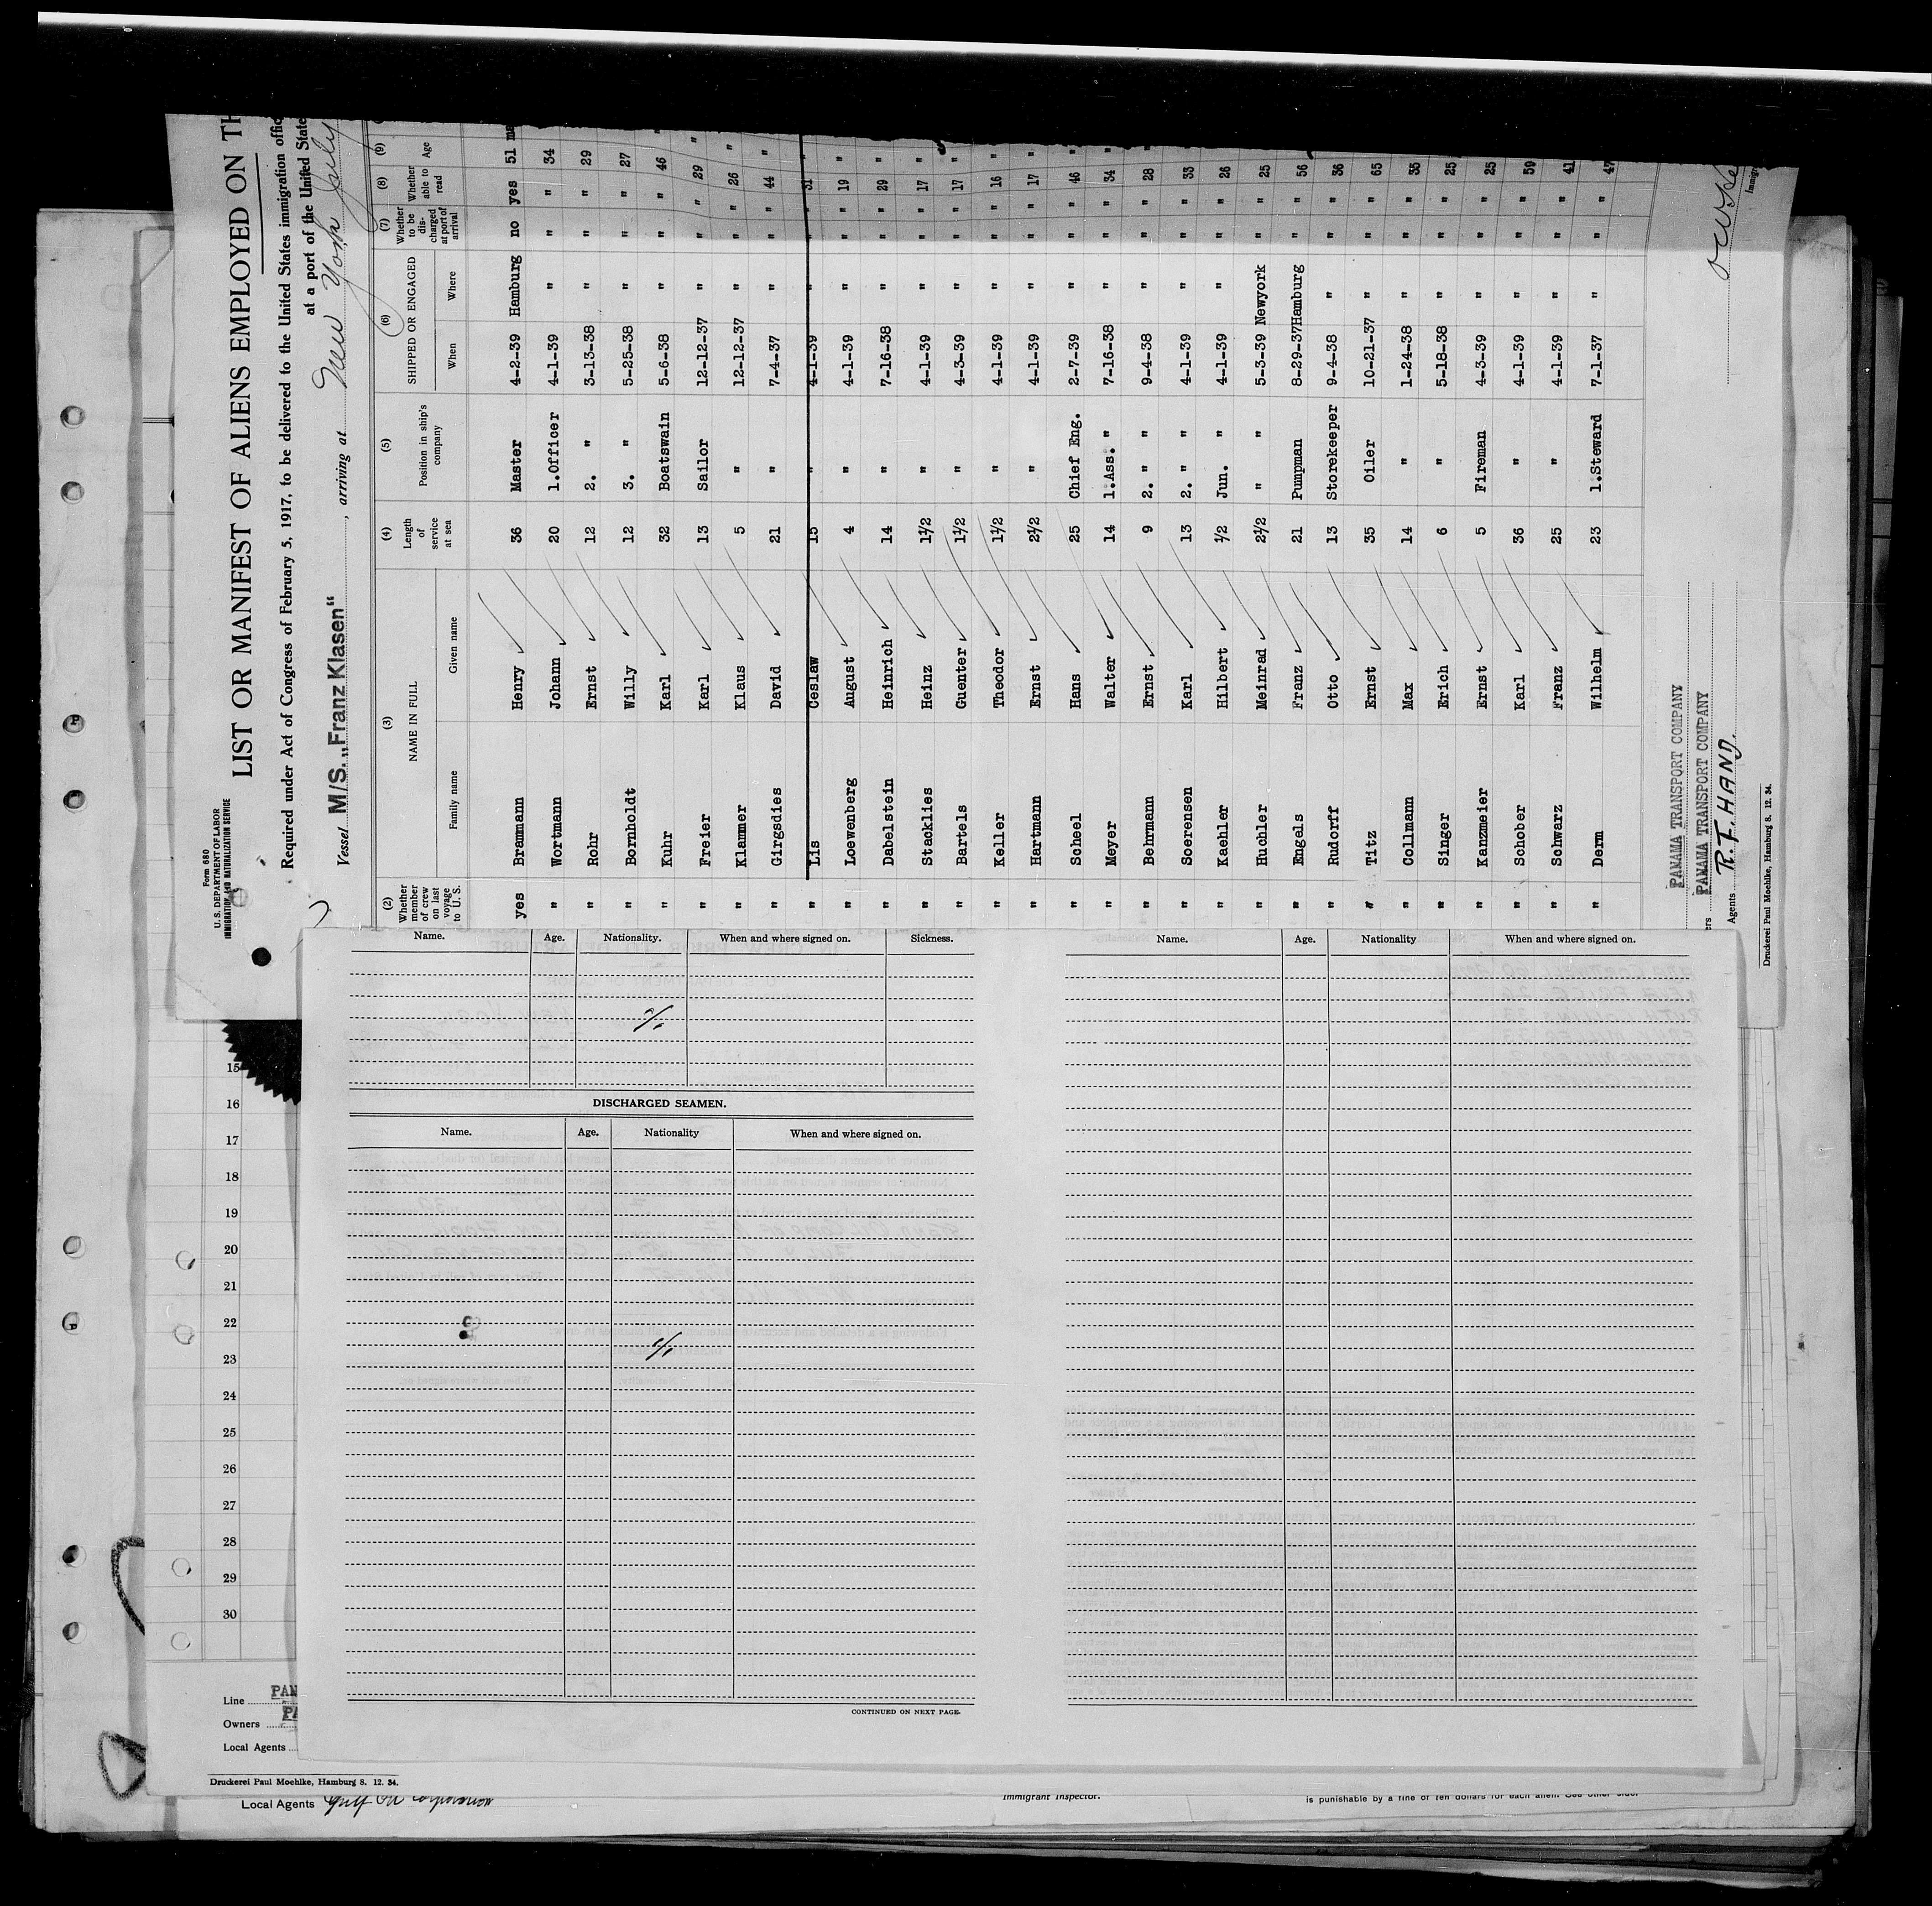 Form 680
U. S. DEPARTMENT OF LABOR
IMMIGRATION AND NATURALIZATION SERVICE
LIST OR MANIFEST OF ALIENS EMPLOYED ON TH
Required under Act of Congress of February 5, 1917, to be delivered to the United States immigration offic
at a port of the United State
Vessel M/S. „Franz Klasen“, arriving at New York July
(2) (3) (4) (5) (6) (7) (8) (9)
Whether member of crew on last voyage to U. S. NAME IN FULL Family name Given name Length of service at sea Position in ship's company SHIPPED OR ENGAGED When Where Whether to be discharged at port of arrival Whether able to read Age
yes Brammann Henry 36 Master 4-2-39 Hamburg no yes 51 ma
" Wortmann Johann 20 1.Officer 4-1-39 " " " 34
" Rohr Ernst 12 2. " 3-13-38 " " " 29
" Bornholdt Willy 12 3. " 5-25-38 " " " 27
" Kuhr Karl 32 Boatswain 5-6-38 " " " 46 "
" Freier Karl 13 Sailor 12-12-37 " " " 29 "
" Klammer Klaus 5 " 12-12-37 " " " 26 "
" Girgsdies David 21 " 7-4-37 " " " 44 "
" Lis Ceslaw 15 " 4-1-39 " " " 31 "
" Loewenberg August 4 " 4-1-39 " " " 19 "
" Dabelstein Heinrich 14 " 7-16-38 " " " 29 "
" Stacklies Heinz 1½ " 4-1-39 " " " 17 "
" Bartels Guenter 1½ " 4-3-39 " " " 17 "
" Keller Theodor 1½ " 4-1-39 " " " 16 "
" Hartmann Ernst 2½ " 4-1-39 " " " 17 "
" Scheel Hans 25 Chief Eng. 2-7-39 " " " 46 "
" Meyer Walter 14 1.Ass. " 7-16-38 " " " 34 "
" Behrmann Ernst 9 2. " " 9-4-38 " " " 28
" Soerensen Karl 13 2. " " 4-1-39 " " " 33
" Kaehler Hilbert ½ Jun. " 4-1-39 " " " 26
" Huchler Meinrad 2½ " " 5-3-39 Newyork " " 25
" Engels Franz 21 Pumpman 8-29-37 Hamburg " " 56
" Rudorff Otto 13 Storekeeper 9-4-38 " " " 36
" Titz Ernst 35 Oiler 10-21-37 " " " 65
" Collmann Max 14 " 1-24-38 " " " 35
" Singer Erich 6 " 5-18-38 " " " 25
" Kanzmeier Ernst 5 Fireman 4-3-39 " " " 25
" Schober Karl 36 " 4-1-39 " " " 59
" Schwarz Franz 25 " 4-1-39 " " " 41
" Derm Wilhelm 23 1.Steward 7-1-37 " " " 47
PANAMA TRANSPORT COMPANY
PANAMA TRANSPORT COMPANY
Agents R.F. HAND.
Immigr
Druckerei Paul Moehlke, Hamburg 8. 12. 34.
Name. Age. Nationality. When and where signed on. Sickness.
DISCHARGED SEAMEN.
Name. Age. Nationality When and where signed on.
CONTINUED ON NEXT PAGE.
Name. Age. Nationality When and where signed on.
15
16
17
18
19
20
21
22
23
24
25
26
27
28
29
30
Line PAN
Owners PA
Local Agents
Druckerei Paul Moehlke, Hamburg 8. 12. 34.
Local Agents Gulf Oil Corporation
Immigrant Inspector.
is punishable by a fine of ten dollars for each alien. See other side.